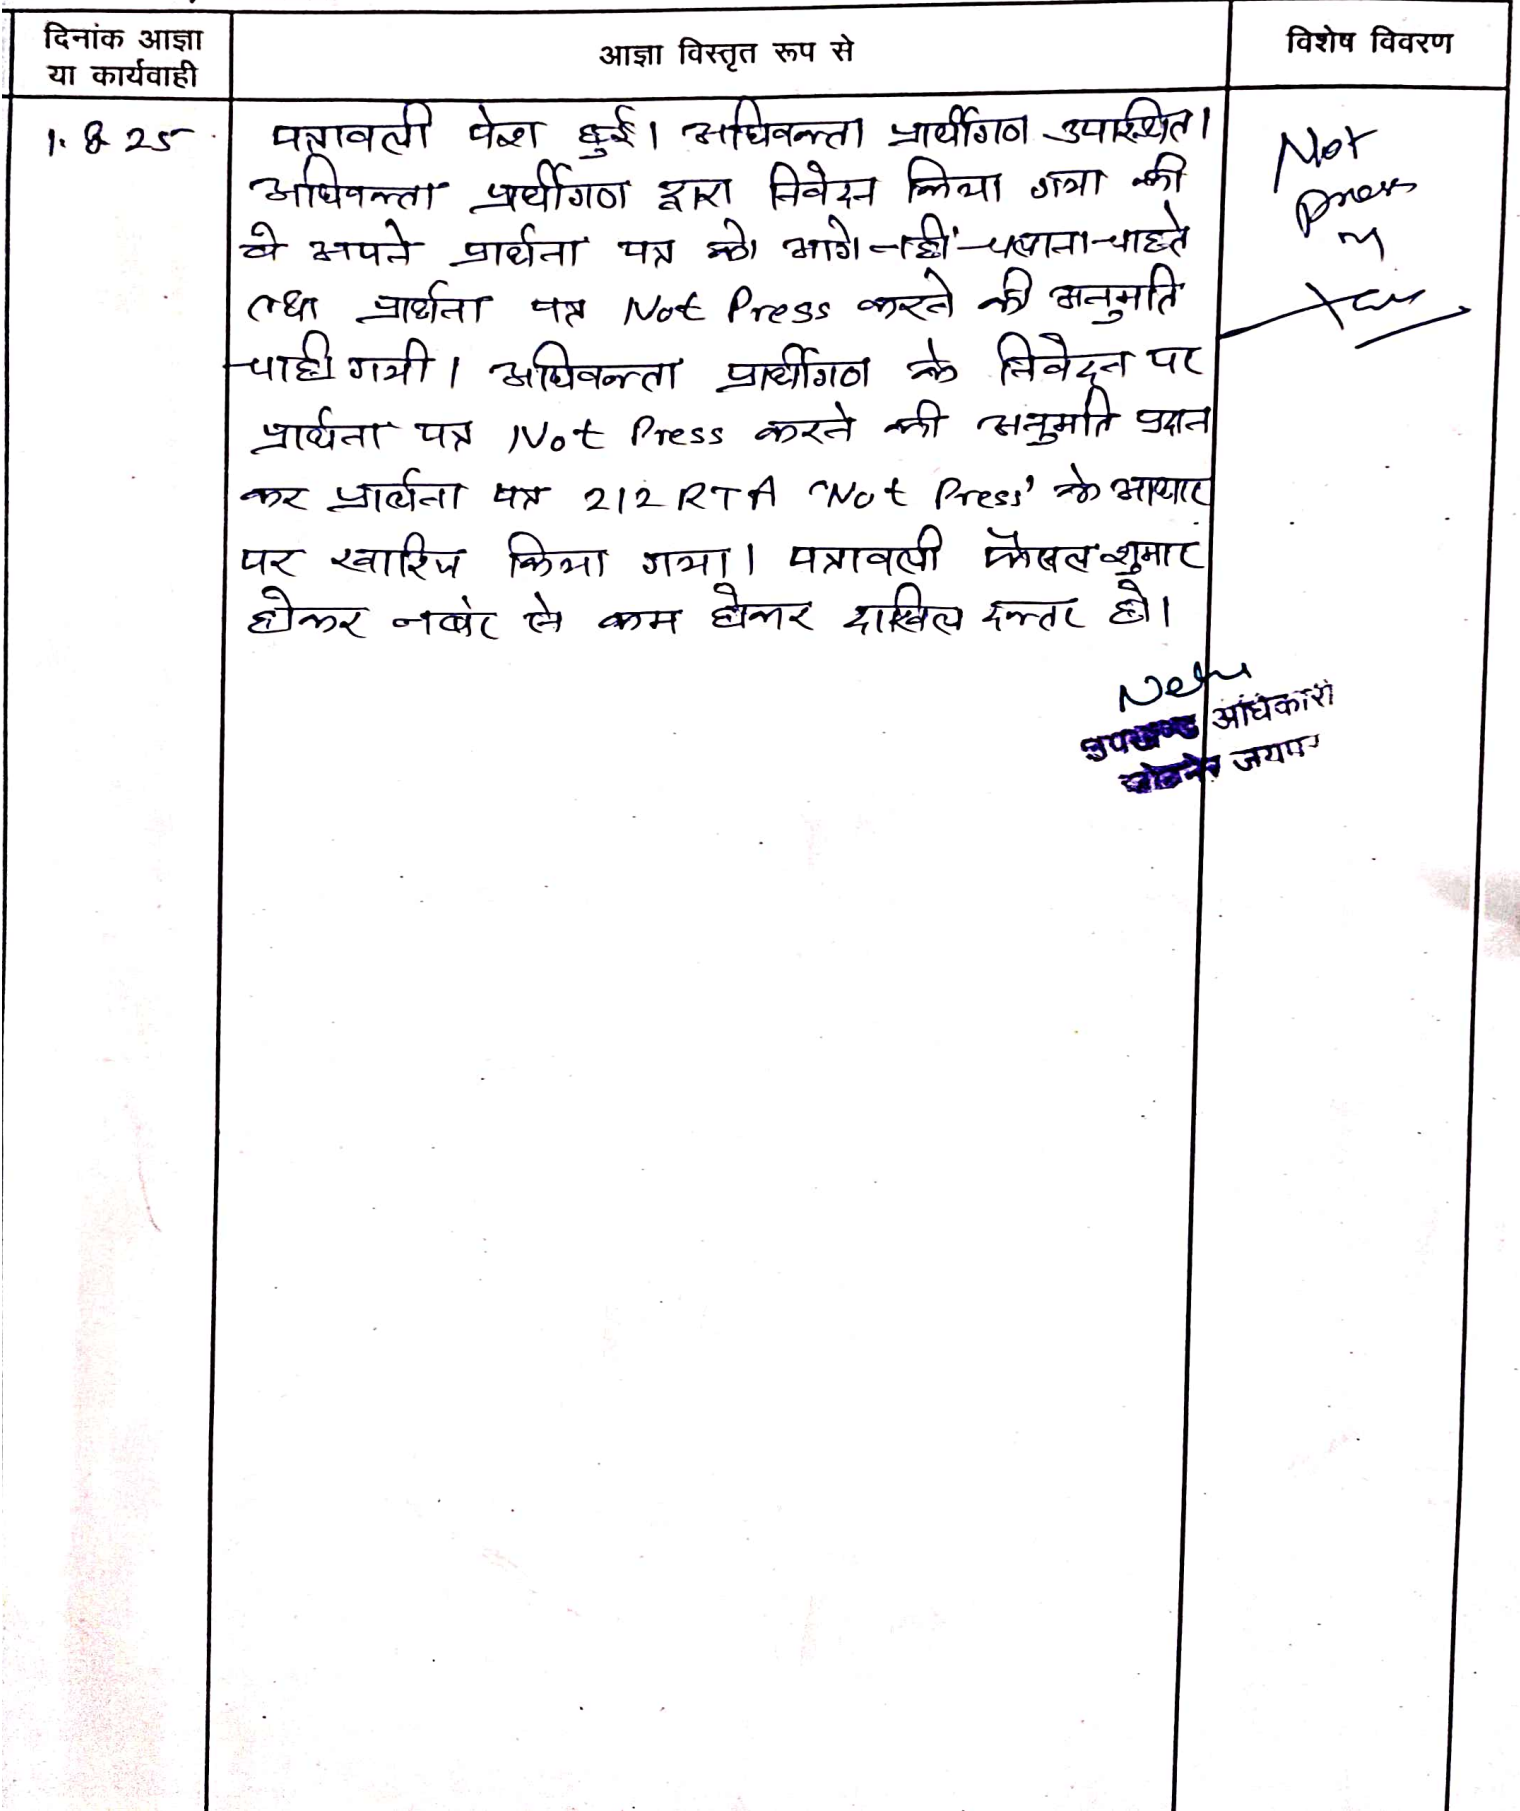 दिनांक आज्ञा
या कार्यवाही
आज्ञा विस्तृत रूप से
विशेष विवरण
1. 8 25
पत्रावली पेश हुई। अधिवक्ता प्रार्थीगण उपस्थित।
अधिवक्ता प्रार्थीगण द्वारा निवेदन किया गया की
वे अपने प्रार्थना पत्र को आगे नहीं चलाना चाहते
तथा प्रार्थना पत्र Not Press करने की अनुमति
चाही गयी। अधिवक्ता प्रार्थीगण के निवेदन पर
प्रार्थना पत्र Not Press करने की अनुमति प्रदान
कर प्रार्थना पत्र 212 RTA "Not Press' के आधार
पर खारिज किया गया। पत्रावली फैसल शुमार
होकर नबंर से कम होकर दाखिल दफ्तर हो।
Not
press
उपखण्ड अधिकारी
जयपुर